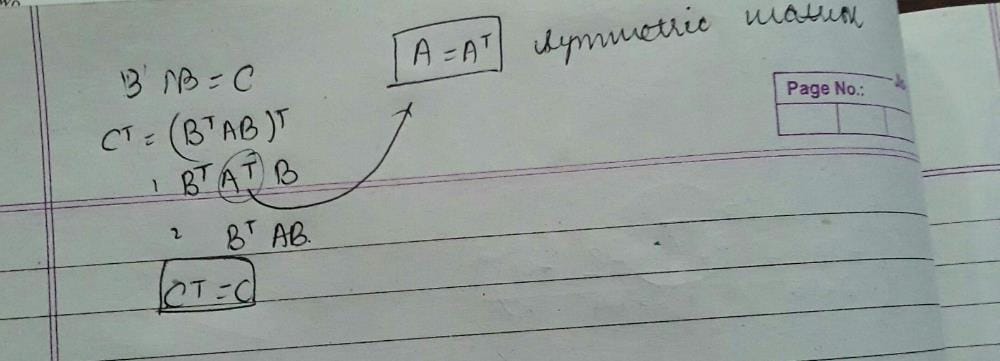 A = Aᵀ symmetric matrix
B' AB = C
Page No.:
Cᵀ = (BᵀAB)ᵀ
Bᵀ Aᵀ B
Bᵀ AB.
Cᵀ = C